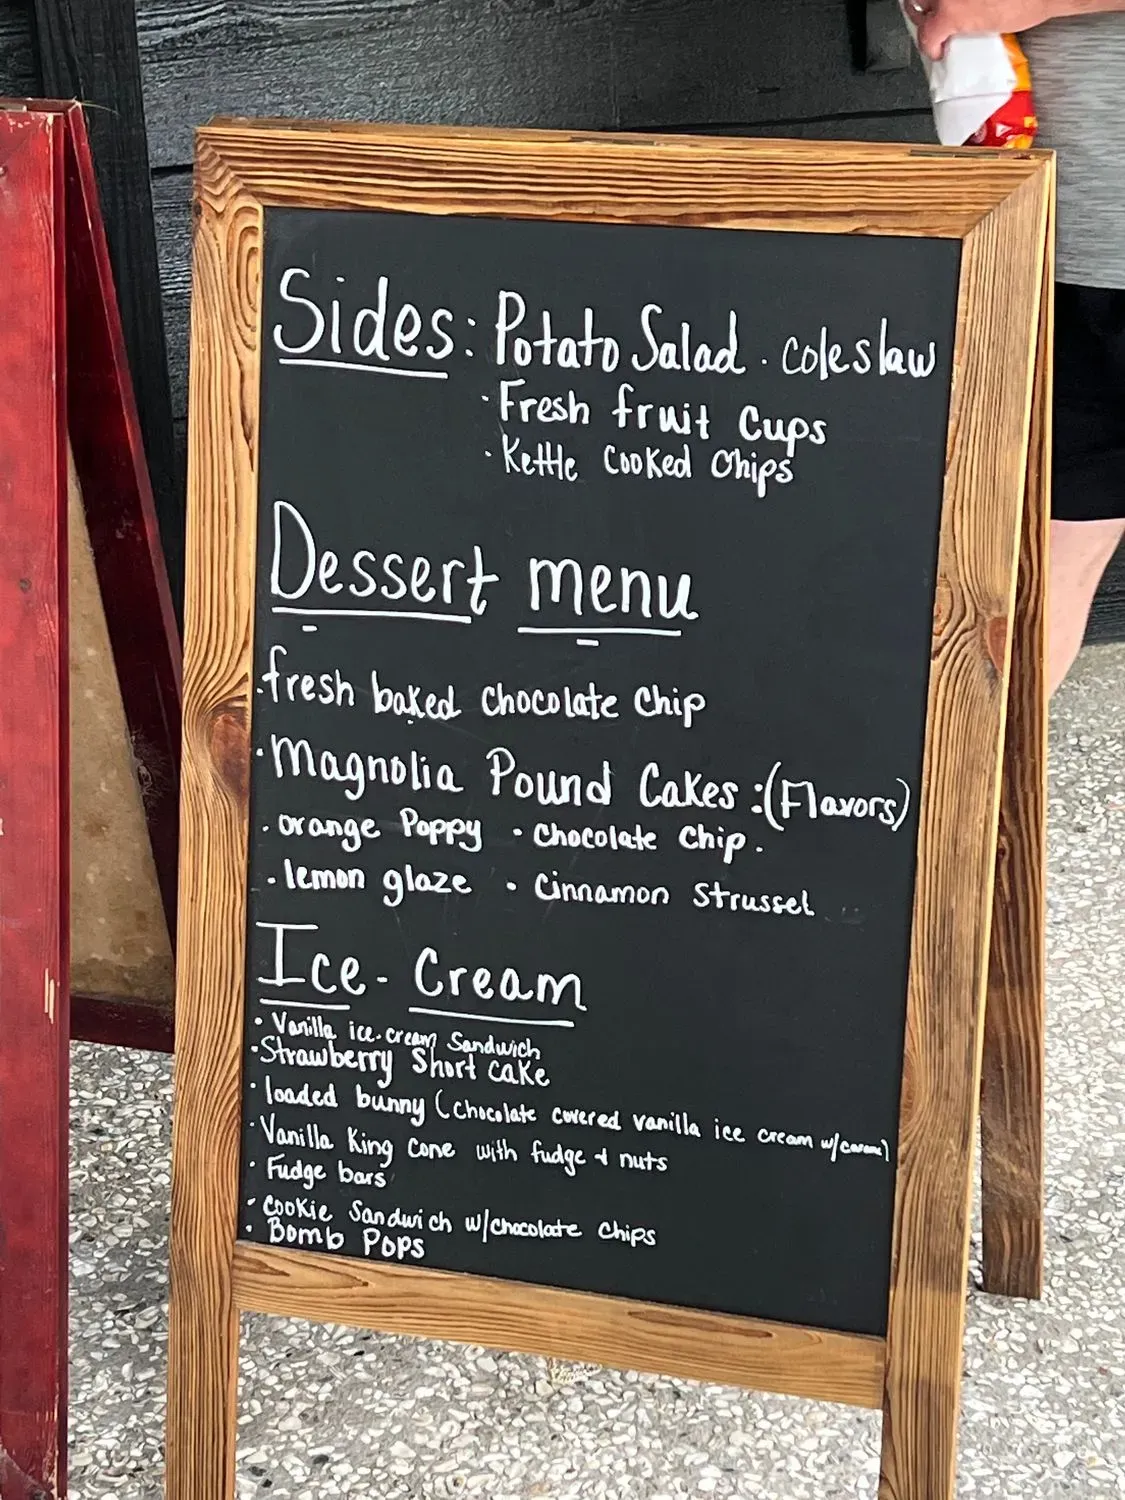 Sides: Potato Salad . coleslaw
· Fresh fruit Cups
· Kettle Cooked Chips
Dessert menu
· fresh baked Chocolate Chip
· Magnolia Pound Cakes :(Flavors)
· orange Poppy · Chocolate Chip .
· lemon glaze · Cinnamon Strussel
Ice - Cream
· Vanilla ice-cream Sandwich
· Strawberry Short Cake
· loaded bunny (Chocolate covered vanilla ice cream w/caramel)
· Vanilla King Cone with fudge + nuts
· Fudge bars
· Cookie Sandwich w/chocolate Chips
· Bomb Pops